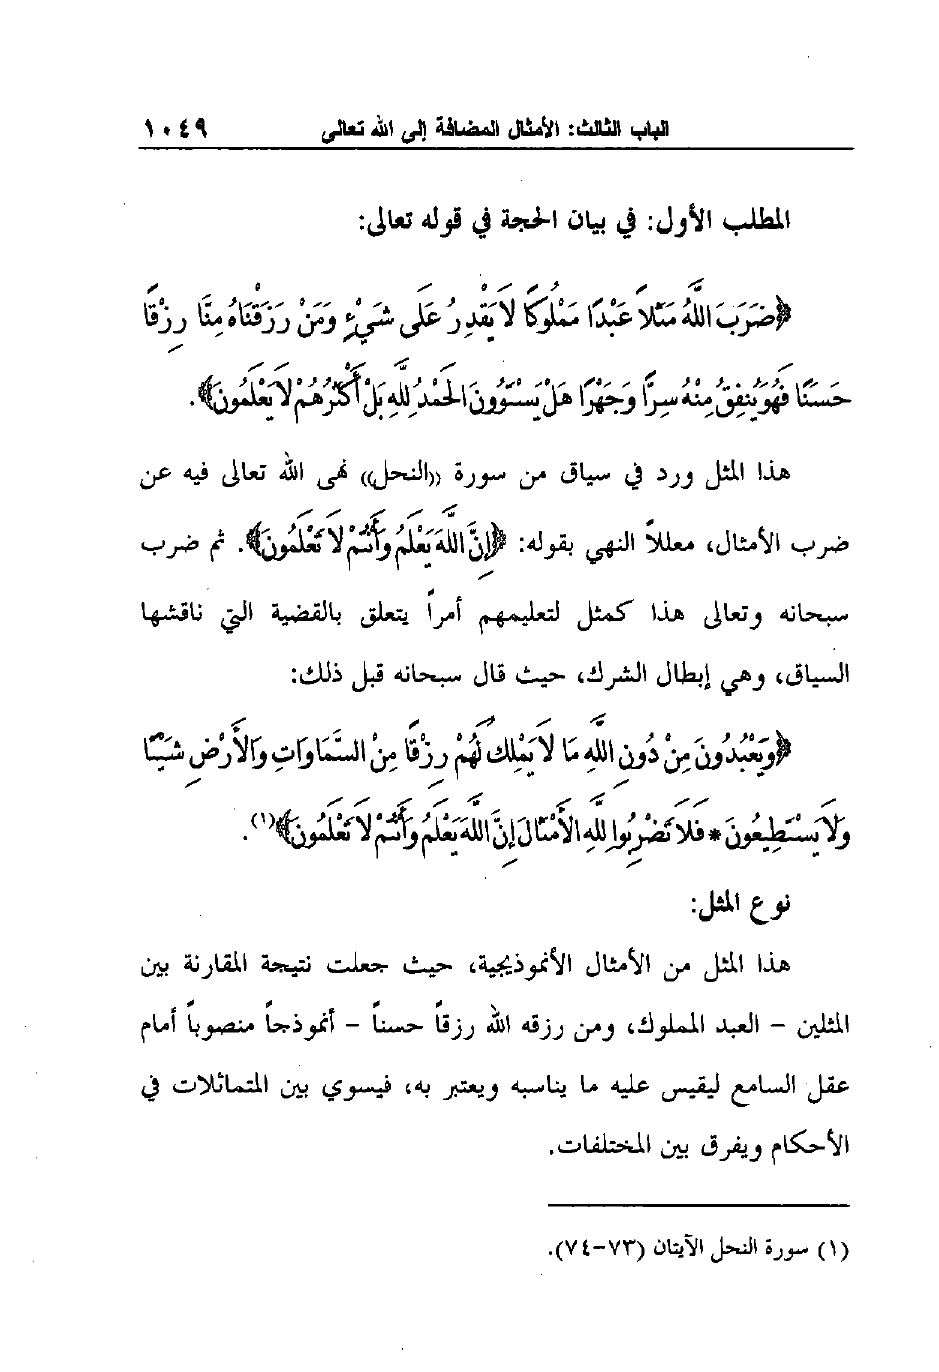 الباب الثالث: الأمثال المضافة إلى الله تعالى ١٠٤٩
المطلب الأول: في بيان الحجة في قوله تعالى:
﴿ضَرَبَ اللَّهُ مَثَلاً عَبْدًا مَمْلُوكًا لَا يَقْدِرُ عَلَى شَيْءٍ وَمَنْ رَزَقْنَاهُ مِنَّا رِزْقًا
حَسَنًا فَهُوَ يُنفِقُ مِنْهُ سِرًّا وَجَهْرًا هَلْ يَسْتَوُونَ الْحَمْدُ لِلَّهِ بَلْ أَكْثَرُهُمْ لَا يَعْلَمُونَ﴾.
هذا المثل ورد في سياق من سورة ((النحل)) نهى الله تعالى فيه عن
ضرب الأمثال، معللاً النهي بقوله: ﴿إِنَّ اللَّهَ يَعْلَمُ وَأَنْتُمْ لَا تَعْلَمُونَ﴾. ثم ضرب
سبحانه وتعالى هذا كمثل لتعليمهم أمراً يتعلق بالقضية التي ناقشها
السياق، وهي إبطال الشرك، حيث قال سبحانه قبل ذلك:
﴿وَيَعْبُدُونَ مِنْ دُونِ اللَّهِ مَا لَا يَمْلِكُ لَهُمْ رِزْقًا مِنْ السَّمَاوَاتِ وَالْأَرْضِ شَيْئًا
وَلَا يَسْتَطِيعُونَ * فَلَا تَضْرِبُوا لِلَّهِ الْأَمْثَالَ إِنَّ اللَّهَ يَعْلَمُ وَأَنْتُمْ لَا تَعْلَمُونَ﴾(١).
نوع المثل:
هذا المثل من الأمثال الأنموذجية، حيث جعلت نتيجة المقارنة بين
المثلين - العبد المملوك، ومن رزقه الله رزقاً حسناً - أنموذجاً منصوباً أمام
عقل السامع ليقيس عليه ما يناسبه ويعتبر به، فيسوي بين المتماثلات في
الأحكام ويفرق بين المختلفات.
(١) سورة النحل الآيتان (٧٣-٧٤).